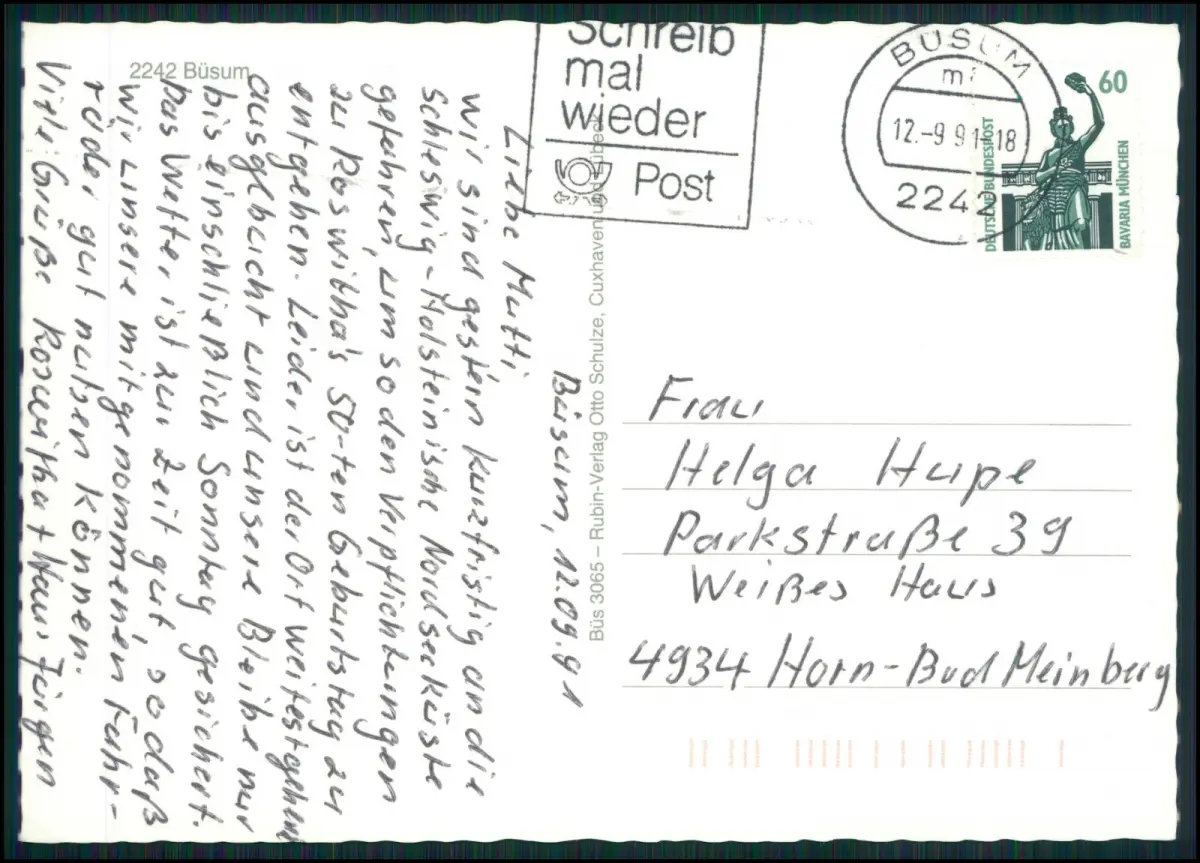 2242 Büsum
Büsum, 12.09.91
Liebe Mutti
wir sind gestern kurzfristig an die
Schleswig-Holsteinische Nordseeküste
gefahren, um so den Verpflichtungen
zu Roswitha's 50-ten Geburtstag zu
entgehen. Leider ist der Ort weitestgehend
ausgebucht und unsere Bleibe nur
bis einschließlich Sonntag gesichert.
Das Wetter ist zur Zeit gut, so daß
wir unsere mitgenommenen Fahr-
räder gut nutzen können.
Viele Grüße Roswitha + Hans Jürgen
Büs 3065 – Rubin-Verlag Otto Schulze, Cuxhaven und Lübeck
Schreib
mal
wieder
Post
BÜSUM
12.-9.91-18
2242
60
DEUTSCHE BUNDESPOST
BAVARIA MÜNCHEN
Frau
Helga Hupe
Parkstraße 39
Weißes Haus
4934 Horn-Bad Meinberg